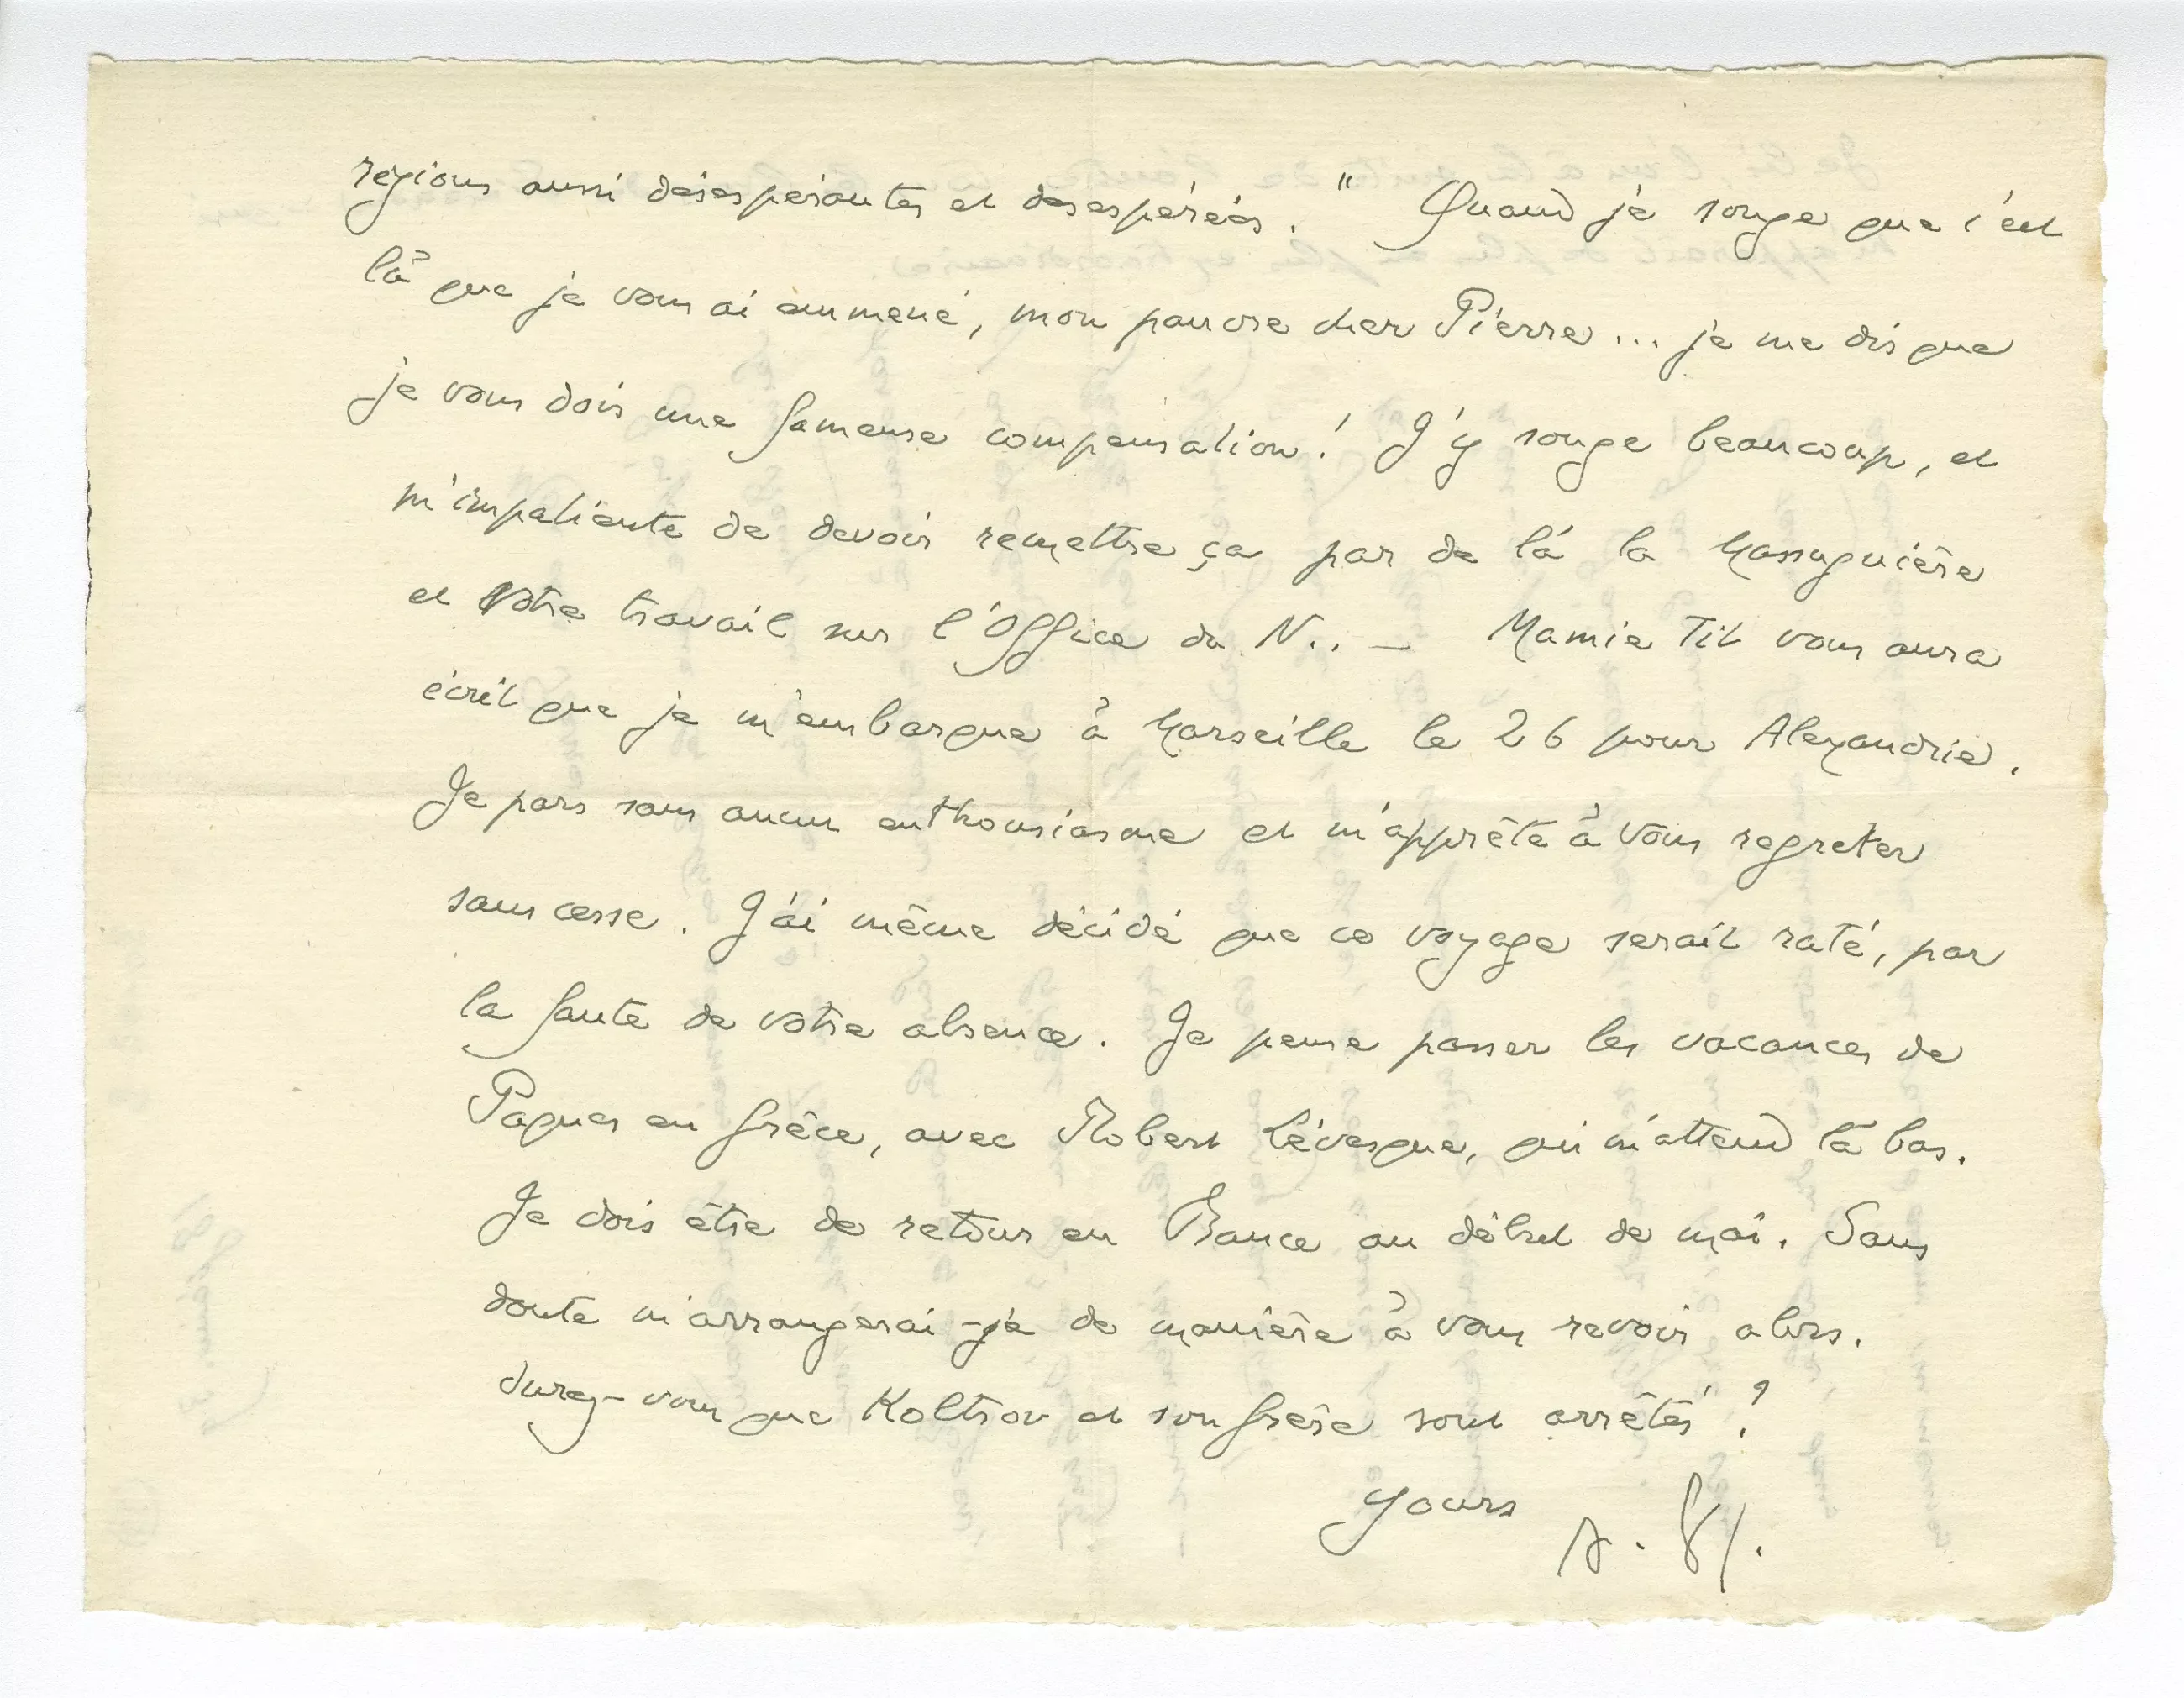 régions aussi désespérantes et désespérées. " Quand je songe que c'est
là que je vous ai emmené, mon pauvre cher Pierre... je me dis que
je vous dois une fameuse compensation! J'y songe beaucoup, et
m'impatiente de devoir remettre ça par de là la Massuguière
et votre travail sur l'Office du N.. — Mamie Tit vous aura
écrit que je m'embarque à Marseille le 26 pour Alexandrie.
Je pars sans aucun enthousiasme et m'apprête à vous regretter
sans cesse. J'ai même décidé que ce voyage serait raté, par
la faute de votre absence. Je pense passer les vacances de
Pâques en Grèce, avec Robert Lévesque, qui m'attend là bas.
Je dois être de retour en France au début de mai. Sans
doute m'arrangerai-je de manière à vous revoir alors.
-vous que Koltsov et son frère sont arrêtés?
Yours A. G.